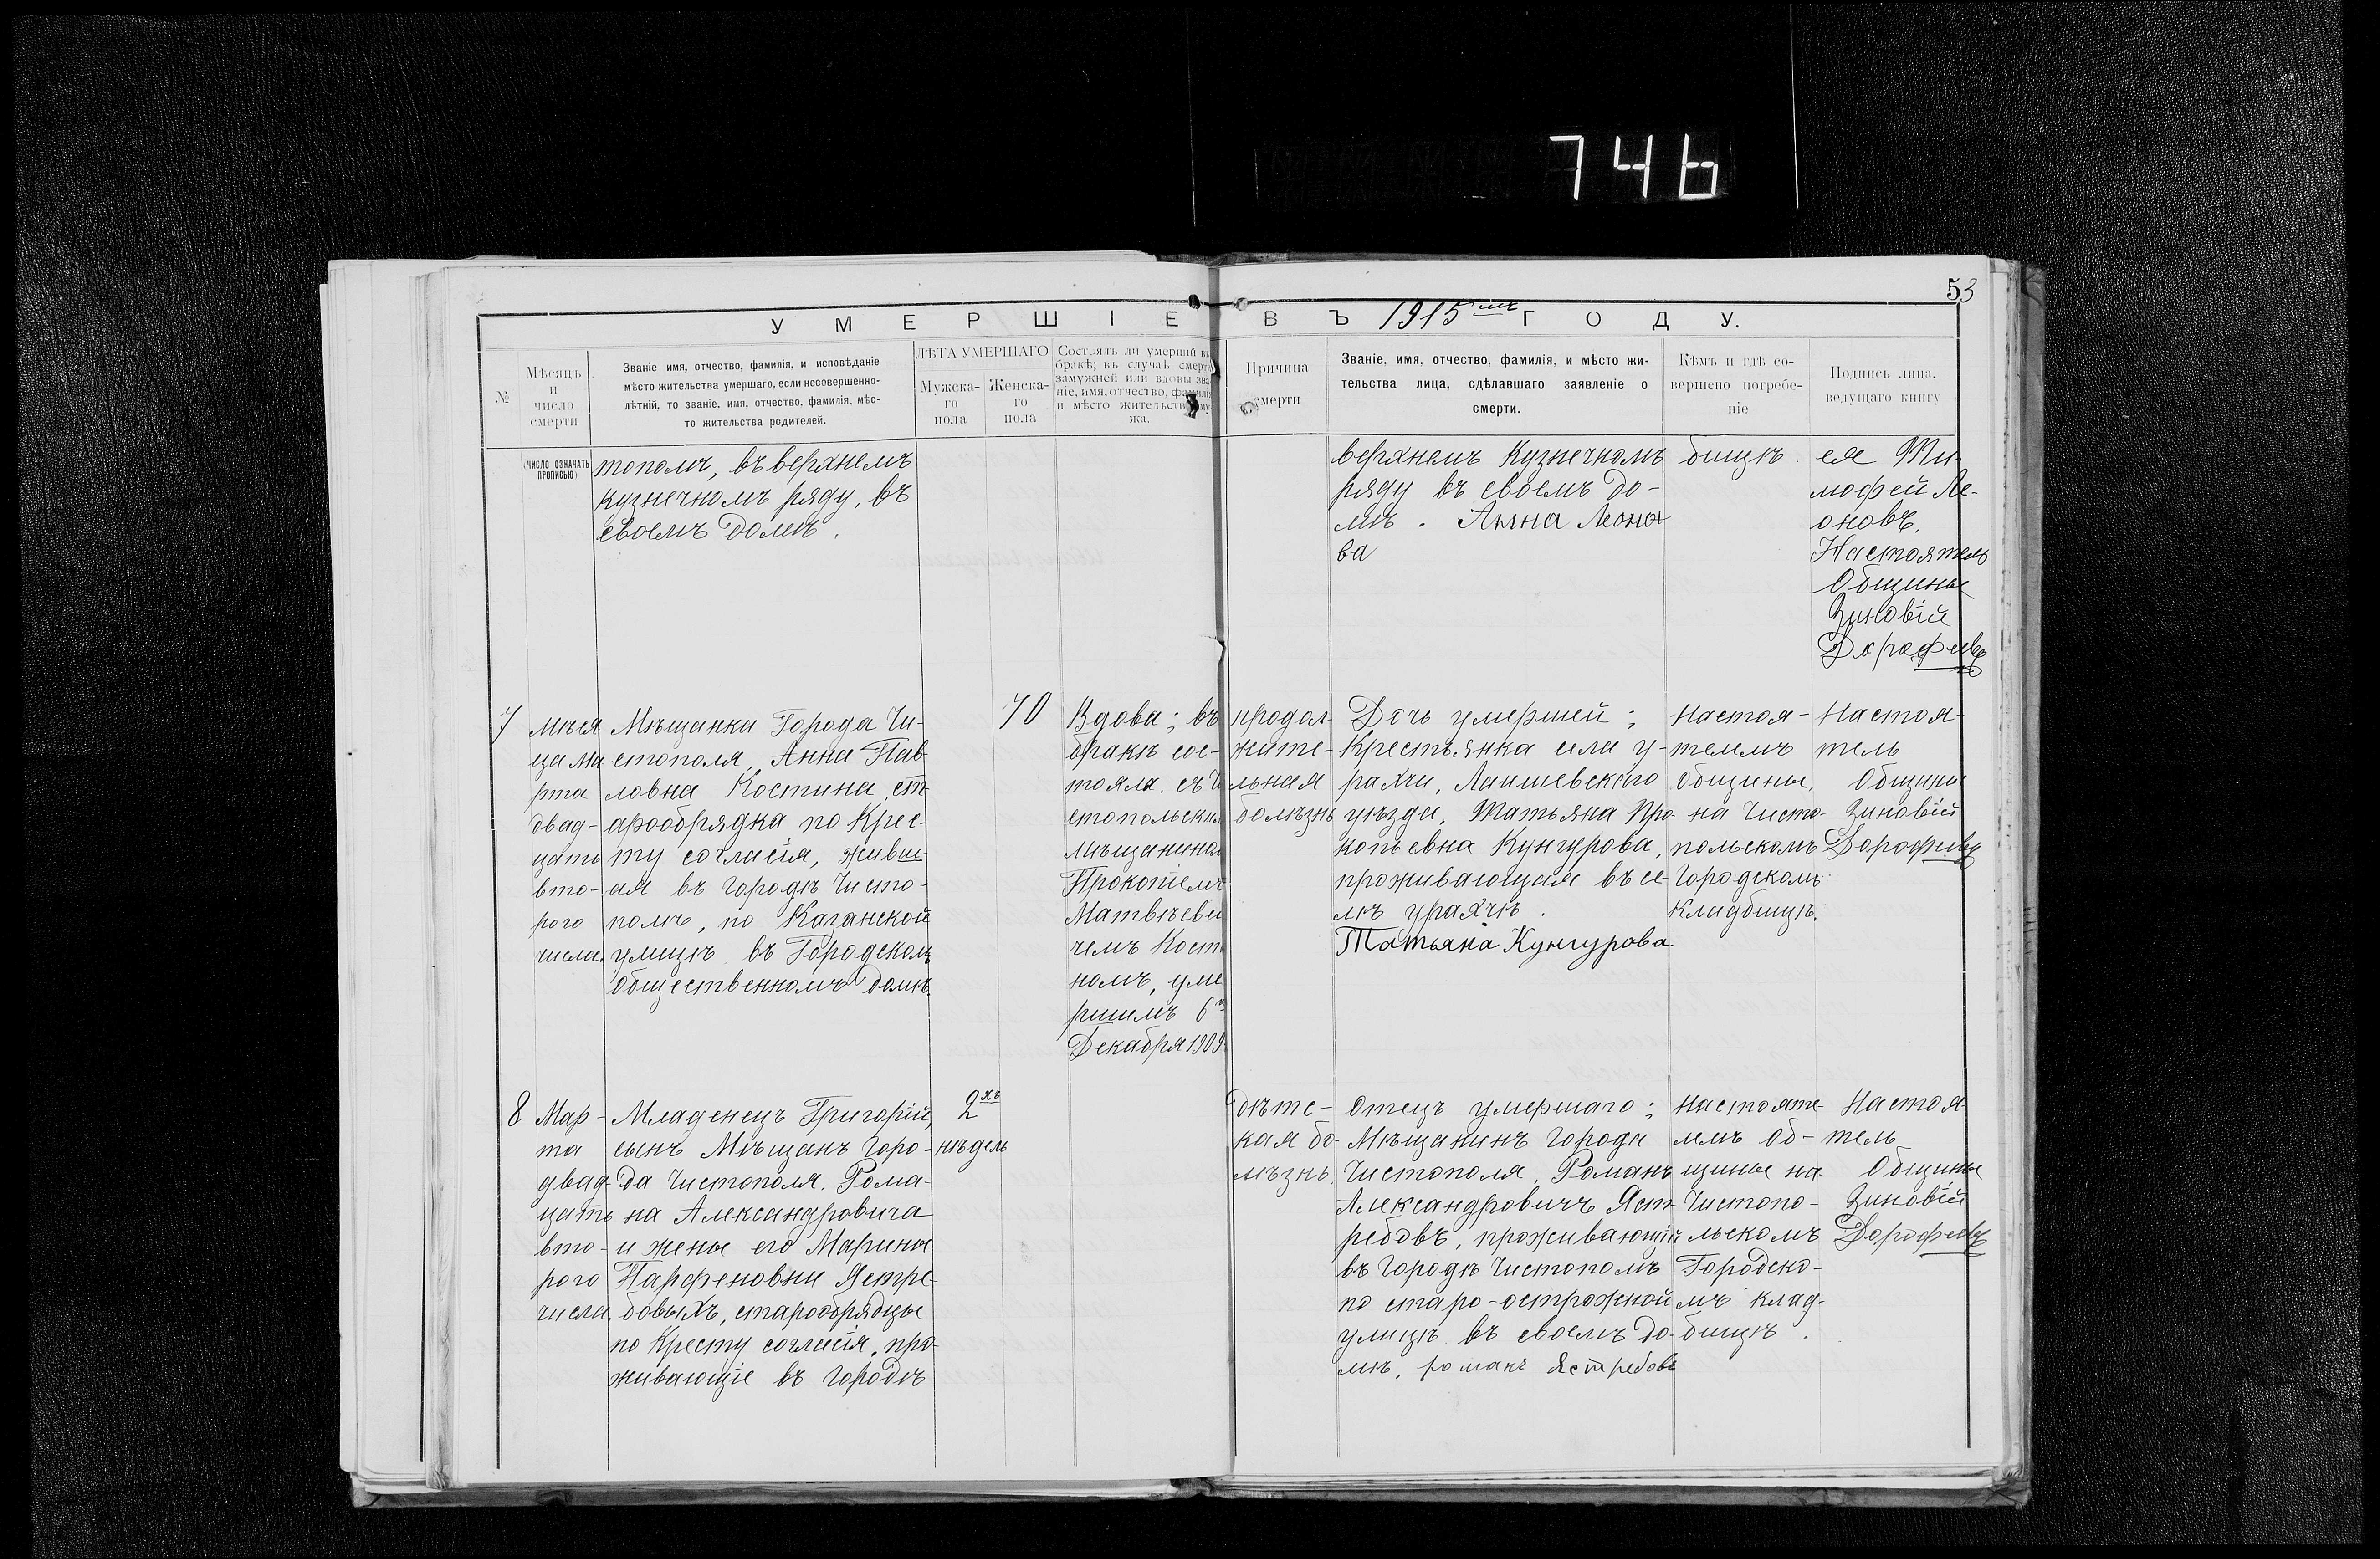 746
53
УМЕРШІЕ ВЪ 1915мъ ГОДУ.
№
Мѣсяцъ
и
число
смерти
(ЧИСЛО ОЗНАЧАТЬ
ПРОПИСЬЮ)
Званіе имя, отчество, фамилія, и исповѣданіе
мѣсто жительства умершаго, если несовершенно-
лѣтній, то званіе, имя, отчество, фамилія, мѣс-
то жительства родителей.
ЛѢТА УМЕРШАГО
Мужска-
го
пола
Женска-
го
пола
Состоятъ ли умерший въ
бракѣ; въ случаѣ смерти
замужней или вдовы зва
ніе, имя, отчество, фамилія
и мѣсто жительства му
жа.
Причина
смерти
Званіе, имя, отчество, фамилія, и мѣсто жи-
тельства лица, сдѣлавшаго заявленіе о
смерти.
Кѣмъ и гдѣ со-
вершено погребе-
ніе
Подпись лица,
ведущаго книгу
тополѣ, въ верхнемъ
кузнечномъ ряду, въ
своемъ домѣ.
верхнемъ Кузнечномъ
ряду въ своемъ до-
мѣ. Анна Леоно
ва
бищѣ.
ея Ти-
мофей Ле-
оновъ.
Настоятель
Общины
Зиновій
Дорофеевъ
7
мѣся
ца Ма
рта
двад-
цать
вто-
рого
числа.
Мѣщанка Города Чи-
стополя, Анна Пав
ловна Костина, ст-
арообрядка по Крес-
ту согласія, живш-
ая въ городѣ Чисто-
полѣ, по Казанской
улицѣ въ Городскомъ
общественномъ домѣ.
70
Вдова; въ
бракѣ сос-
тояла съ Чи
стопольским
мѣщанином
Прокопіемъ
Матвѣеви
чемъ Кости
номъ, уме
ршимъ 6го
Декабря 1909
продол-
жите-
льная
болѣзнь
Дочь умершей;
Крестьянка села У-
рахчи, Лаишевскаго
уѣзда, Татьяна Про-
копьевна Кунгурова,
проживающая въ се-
лѣ урахчѣ.
Татьяна Кунгурова.
Настоя-
телемъ
общины,
на Чисто-
польскомъ
Городскомъ
Кладбищѣ.
Настоя-
тель
Общины
Зиновій
Дорофеевъ
8
Мар-
та
двад-
цать
вто-
рого
числа.
Младенецъ Григорій,
сынъ Мѣщанъ Горо-
да Чистополя. Рома-
на Александровича
и жены его Марины
Парфеновны Ястре-
бовыхъ, старообрядцы
по Кресту согласія, про-
живающіе въ городѣ
2хъ
нѣдель
дѣтс-
кая бо-
лѣзнь.
Отецъ умершаго;
Мѣщанинъ Города
Чистополя, Романъ
Александровичъ Яст-
ребовъ, проживающій
въ Городѣ Чистополѣ
по старо-острожной
улицѣ въ своемъ до-
мѣ. романъ Ястребовъ
Настояте-
лемъ об-
щины на
Чистопо-
льскомъ
Городско-
мъ клад-
бищѣ.
Настоя-
тель
Общины
Зиновій
Дорофеевъ